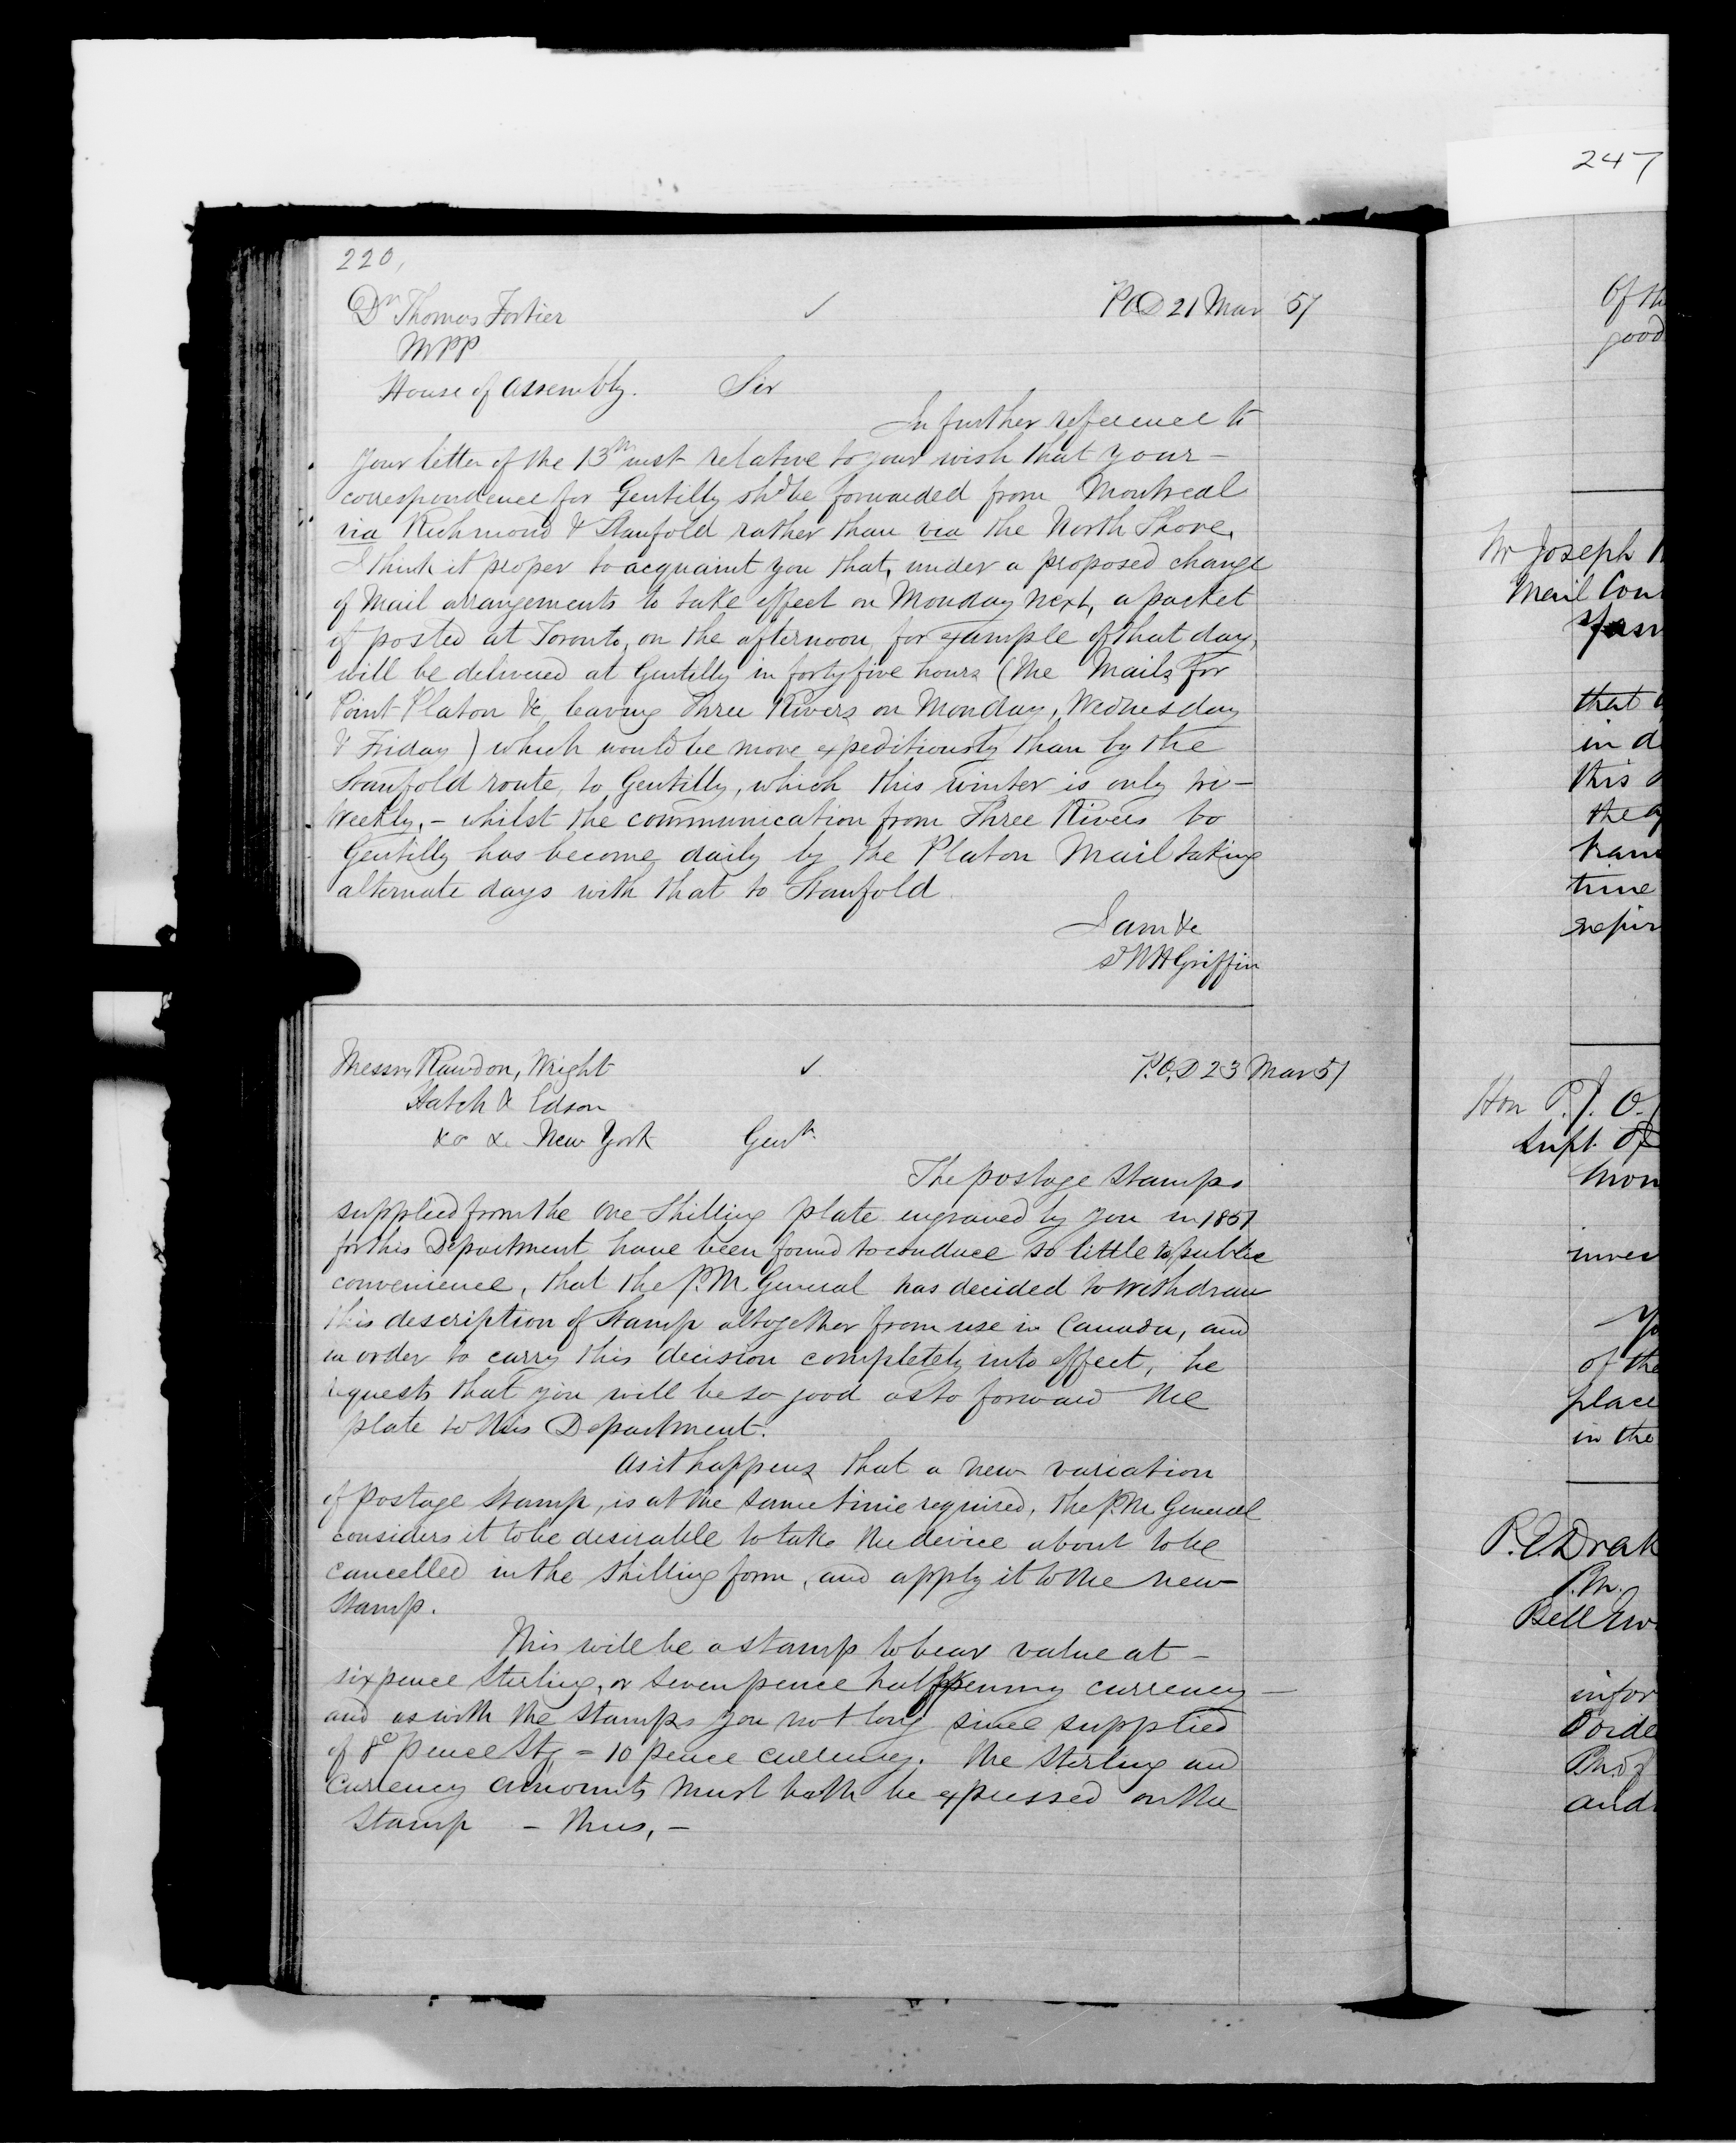 247
220,
Dr Thomas Fortier ✓ P.O.D 21 Mar 57
MPP
House of Assembly. Sir
In further reference to
your letter of the 13th inst relative to your wish that your -
correspondence for Gentilly shd be forwarded from Montreal
via Richmond & Stanfold rather than via the North Shore,
I think it proper to acquaint you that, under a proposed change
of Mail arrangements to take effect on Monday next, a packet
if posted at Toronto, on the afternoon, for example of that day,
will be delivered at Gentilly in forty five hours (the Mails for
Point Platon &c, leaving Three Rivers on Monday, Wednesday
& Friday) which would be more expeditiously than by the
Stanfold route, to Gentilly, which this winter is only tri-
Weekly, - whilst the communication from Three Rivers to
Gentilly has become daily by the Platon Mail taking
alternate days with that to Stanfold.
I am &c
Sd WH Griffin
Messrs Rawdon, Wright ✓ P.O.D 23 Mar 57
Hatch & Edson
&c &c New York Gentn
The postage stamps
supplied from the One Shilling plate engraved by you in 1851
for this Department have been found to conduce so little to public
convenience, that the P.M. General has decided to withdraw
this description of Stamp altogether from use in Canada, and
in order to carry this decision completely into effect, he
requests that you will be so good as to forward the
plate to this Department.
As it happens that a new variation
of postage stamp, is at the same time required, the P.M. General
considers it to be desirable to take the device about to be
cancelled in the shilling form, and apply it to the new
stamp.
This will be a stamp to bear value at -
sixpence Sterling, or seven pence halfpenny currency -
and as with the stamps you not long since supplied
of 8 pence Stg = 10 pence currency. the Sterling and
Currency amounts must both be expressed on the
stamp - thus, -
Of the
good
Mr Joseph
Mail Con
that
in d
this
the
tran
time
Hon P.J.O.
Supt of
Mon
of the
place
in the
P.E. Drak
P.M.
Bell Ew
infor
and